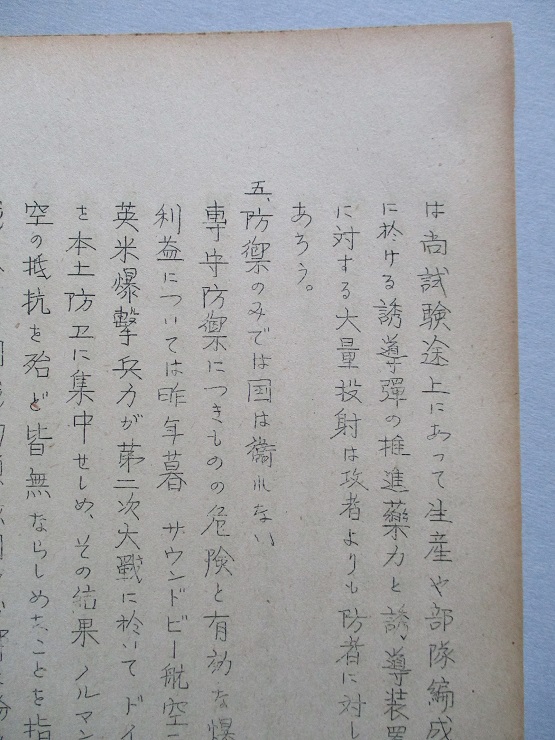 は尚試験途上にあって生産や部隊編成
に於ける誘導彈の推進藥力と誘導装置
に対する大量投射は攻者よりも防者に対し
あろう。
五、防禦のみでは国は衞れない
専守防禦につきものの危険と有効な爆
利益については昨年暮 サウンドビー航空
英米爆撃兵力が第二次大戰に於いてドイ
を本土防卫に集中せしめ、その結果 ノルマン
空の抵抗を殆ど皆無ならしめたことを指